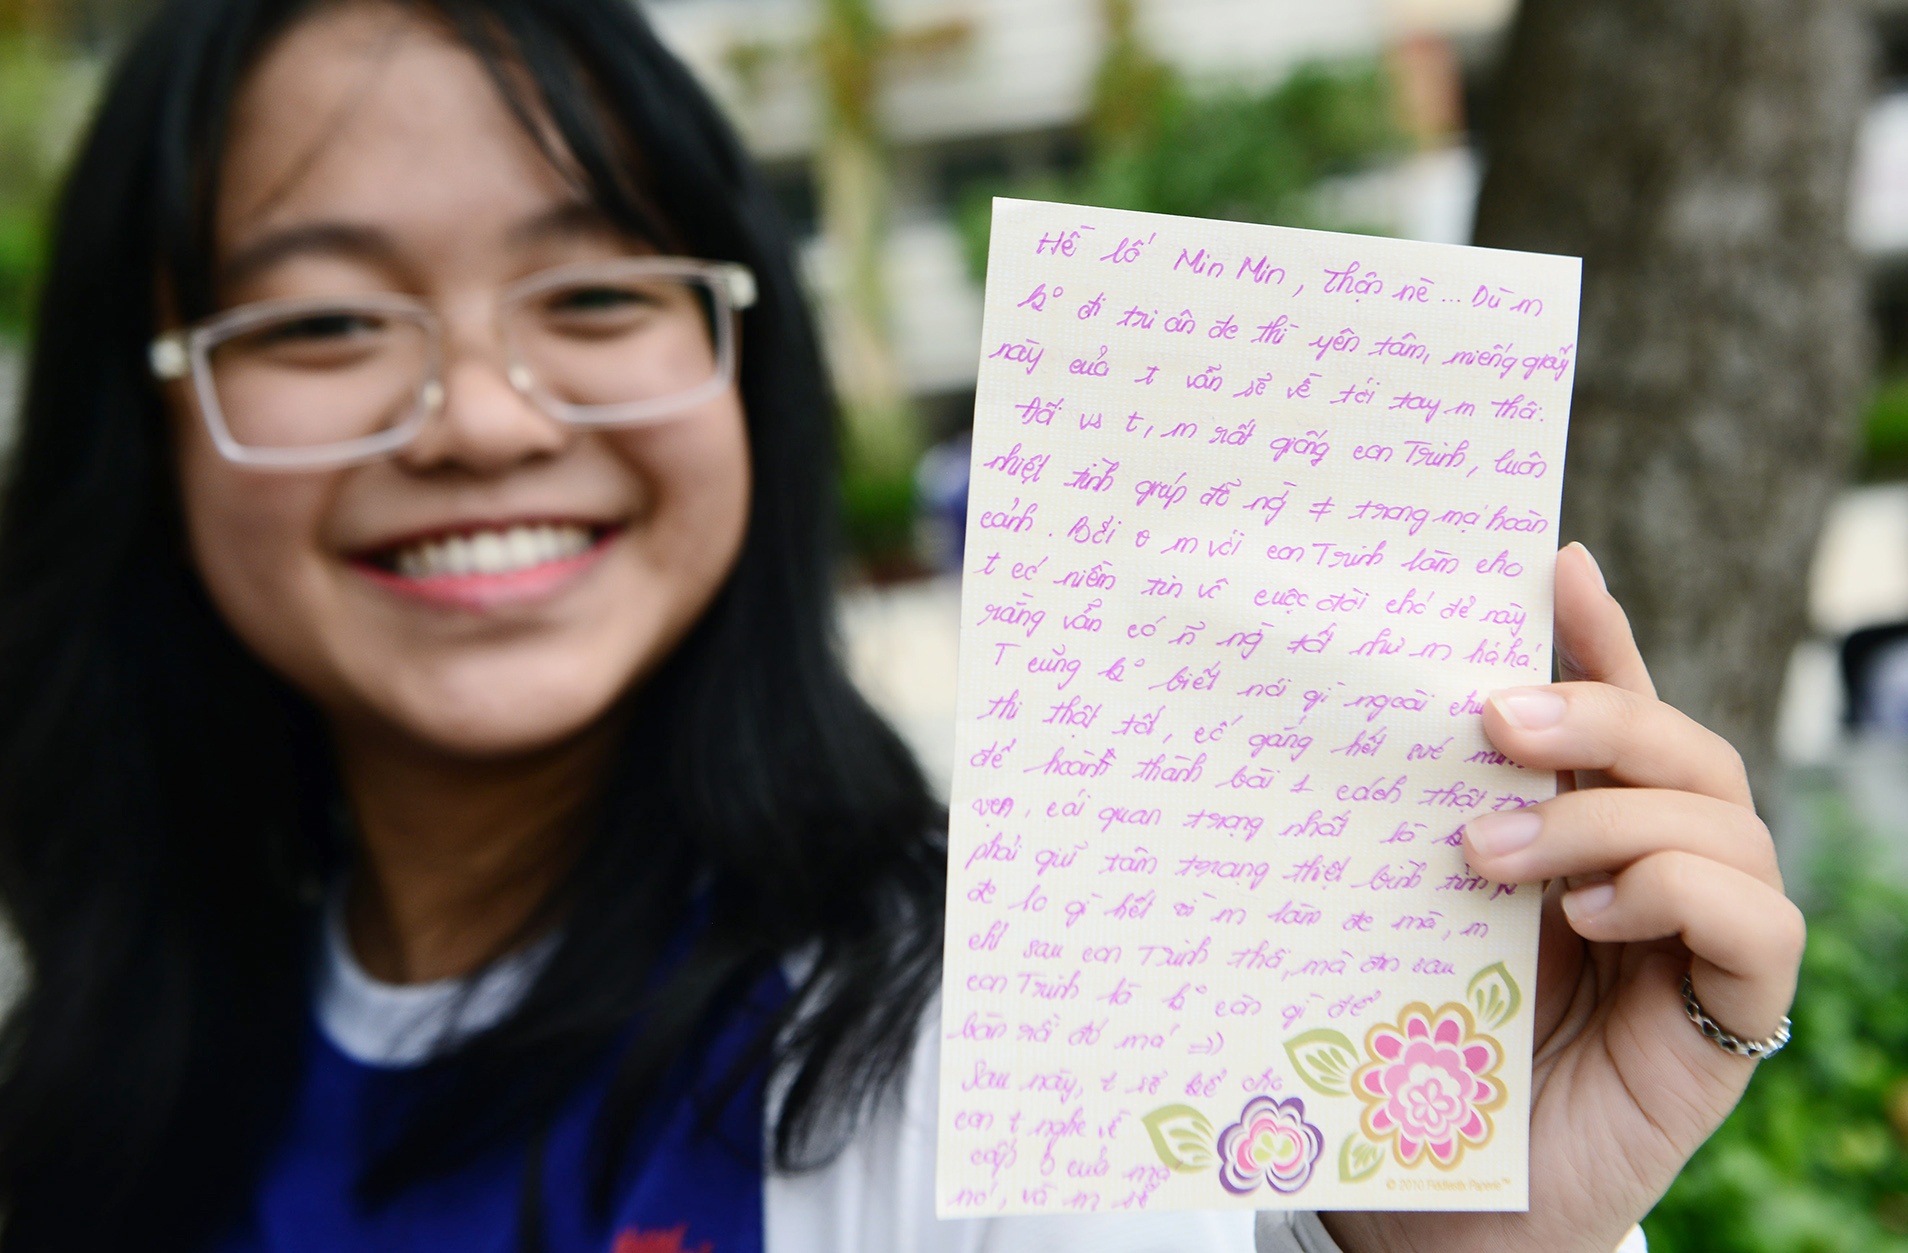 Hề lố Min Min, Thận nè... Dù m
ko đi tri ân đc thì yên tâm, miếng giấy
này của t vẫn sẽ về tới tay m thôi.
Đối vs t, m rất giống con Trinh, luôn
nhiệt tình giúp đỡ ng ≠ trong mọi hoàn
cảnh. Bởi m với con Trinh làm cho
t có niềm tin vô cuộc đời chó đẻ này
rằng vẫn có ng tốt như m há há!
T cũng ko biết nói gì ngoài
thi thật tốt, cố gắng hết sức
để hoành thành bài 1 cách thật
vẹn, cái quan trọng nhất là
phải giữ tâm trạng thiệt bình tĩnh,
đc lo gì hết vì m làm đc mà, m
chỉ sau con Trinh thôi, mà sau
con Trinh là ko cần gì để
bàn rồi đó má =))
Sau này, t sẽ kể cho
con t nghe về
cấp 3 của mẹ
nó, và m sẽ
© 2010